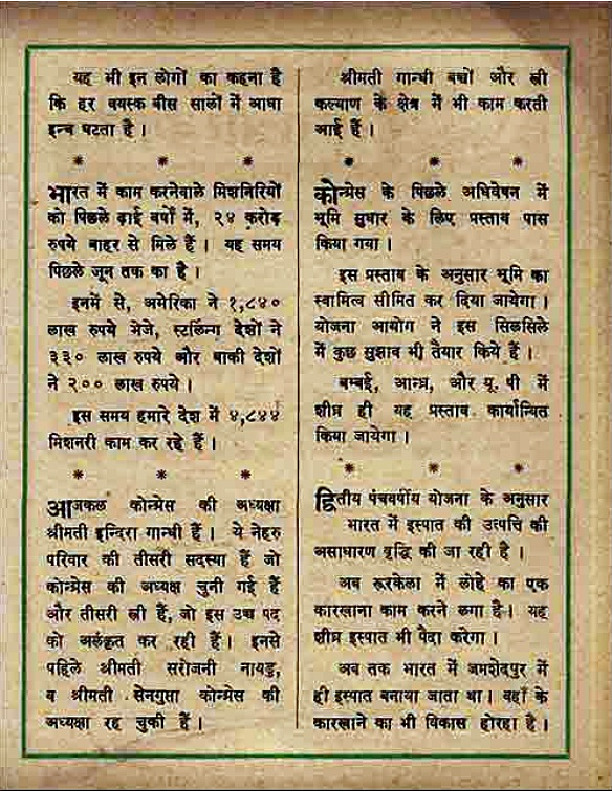 यह भी इन लोगों का कहना है
कि हर वयस्क बीस सालों में आधा
इन्च घटता है ।
* * *
भारत में काम करनेवाले मिशनिरियों
को पिछले ढ़ाई वर्षों में, २४ करोड़
रुपये बाहर से मिले हैं । यह समय
पिछले जून तक का है ।
इनमें से, अमेरिका ने १,८४०
लाख रुपये भेजे, स्टर्लिन्ग देशों ने
३३० लाख रुपये और बाकी देशों
ने २०० लाख रुपये ।
इस समय हमारे देश में ४,८४४
मिशनरी काम कर रहे हैं ।
* * *
आजकल कोन्ग्रेस की अध्यक्षा
श्रीमती इन्दिरा गान्धी हैं । ये नेहरु
परिवार की तीसरी सदस्या हैं जो
कोन्ग्रेस की अध्यक्ष चुनी गई हैं
और तीसरी स्त्री हैं, जो इस उच्च पद
को अलंकृत कर रही हैं । इनसे
पहिले श्रीमती सरोजनी नायडु,
व श्रीमती सेनगुप्ता कोन्ग्रेस की
अध्यक्षा रह चुकी हैं ।
श्रीमती गान्धी बच्चों और स्त्री
कल्याण के क्षेत्र में भी काम करती
आई हैं ।
* * *
कोन्ग्रेस के पिछले अधिवेषन में
भूमि सुधार के लिए प्रस्ताव पास
किया गया ।
इस प्रस्ताव के अनुसार भूमि का
स्वामित्व सीमित कर दिया जायेगा ।
योजना आयोग ने इस सिलसिले
में कुछ सुझाव भी तैयार किये हैं ।
बम्बई, आन्ध्र, और यू. पी में
शीघ्र ही यह प्रस्ताव कार्यान्वित
किया जायेगा ।
* * *
द्वितीय पंचवर्षीय योजना के अनुसार
भारत में इस्पात की उत्पत्ति की
असाधारण वृद्धि की जा रही है ।
अब रूरकेला में लोहे का एक
कारखाना काम करने लगा है । यह
शीघ्र इस्पात भी पैदा करेगा ।
अब तक भारत में जमशेदपुर में
ही इस्पात बनाया जाता था । वहाँ के
कारखाने का भी विकास होरहा है ।